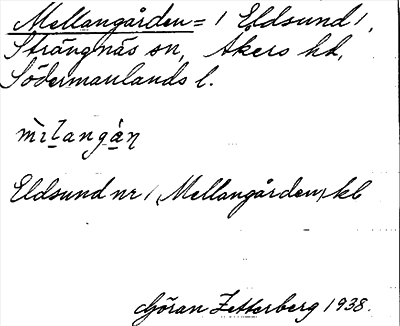 Mellangården = / Eldsund /,
Strängnäs sn, Åkers hd,
Södermanlands l.
mìlangàn̥
Eldsund nr 1 (Mellangården) kb
Göran Zetterberg 1938.